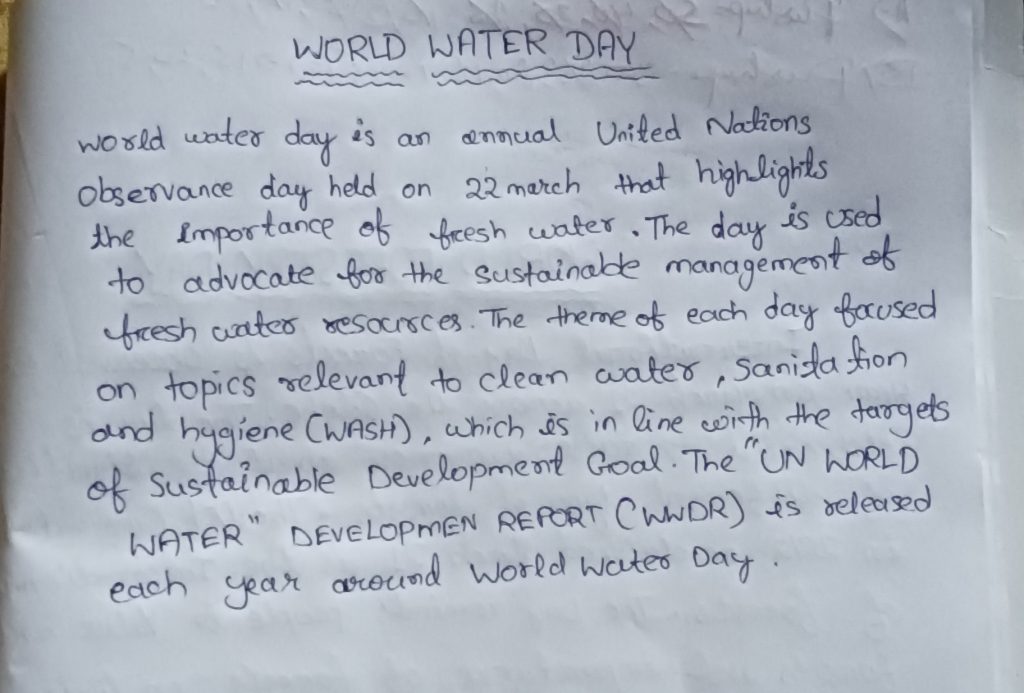 WORLD WATER DAY
world water day is an annual United Nations
Observance day held on 22 march that highlights
the importance of fresh water. The day is used
to advocate for the sustainable management of
fresh water resources. The theme of each day focused
on topics relevant to clean water, sanitation
and hygiene (WASH), which is in line with the targets
of Sustainable Development Goal. The "UN WORLD
WATER" DEVELOPMEN REPORT (WWDR) is released
each year around World Water Day.